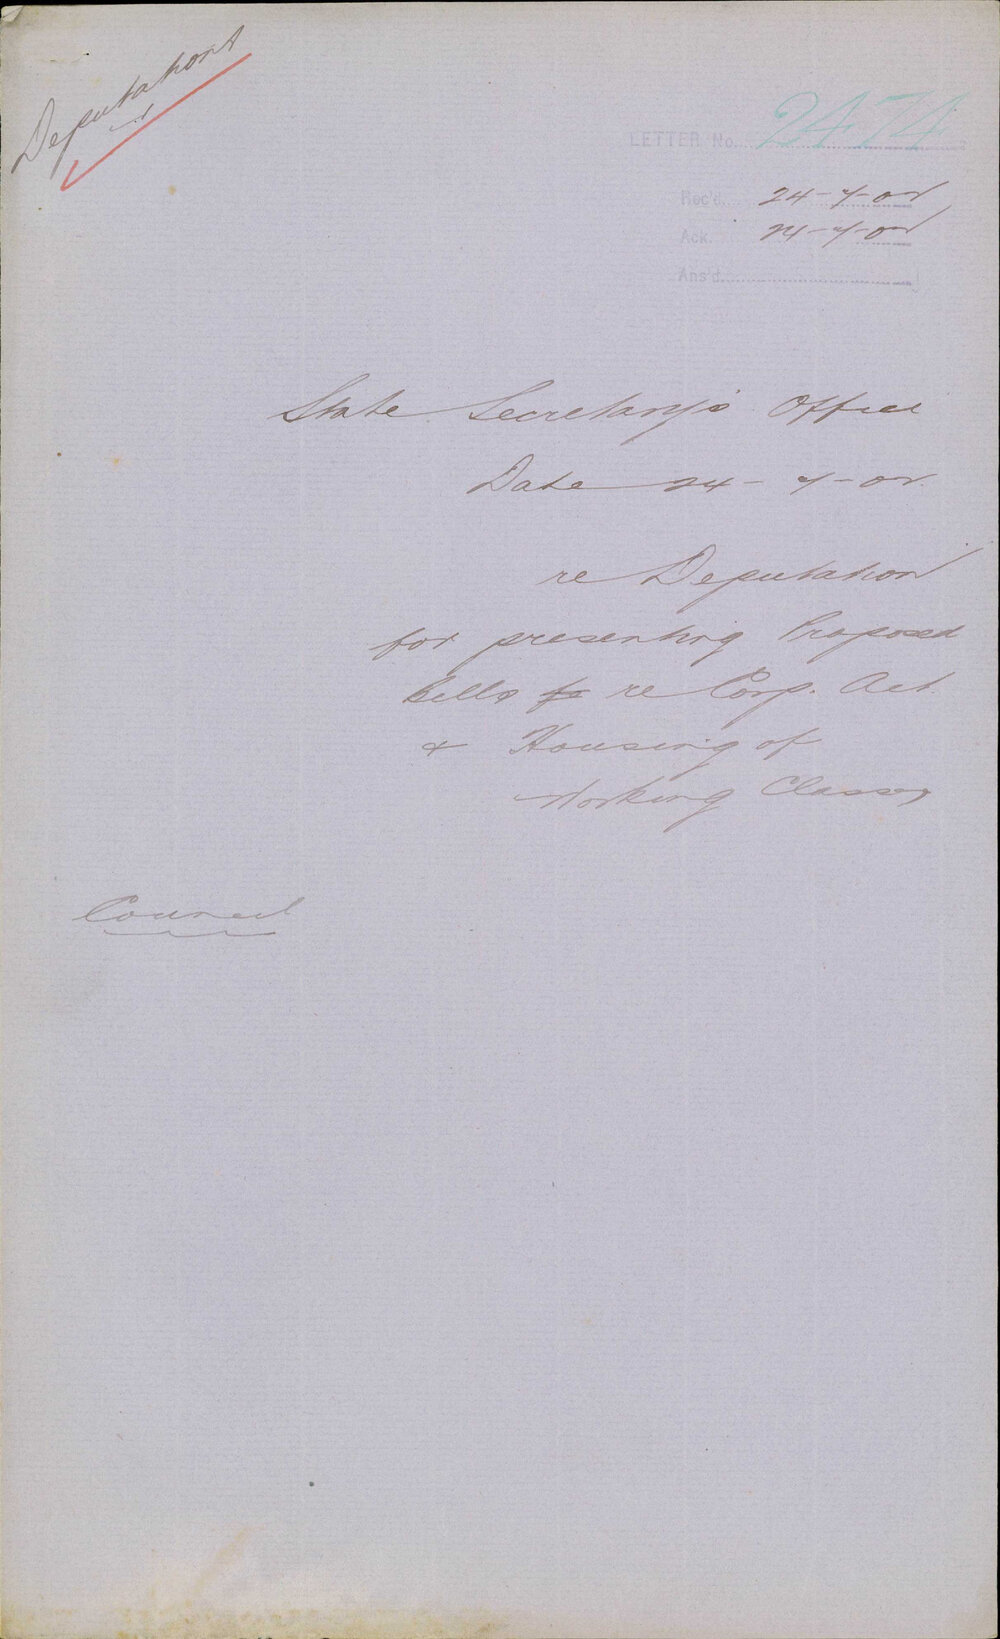 Deputations
LETTER No. 2474
Rec'd. 24-7-02
Ack. 24-7-02
Ans'd.
State Secretary's Office
Date 24-7-02.
re Deputation
for presenting Proposed
bills re Corp. Act.
& Housing of
Working Classes
Council